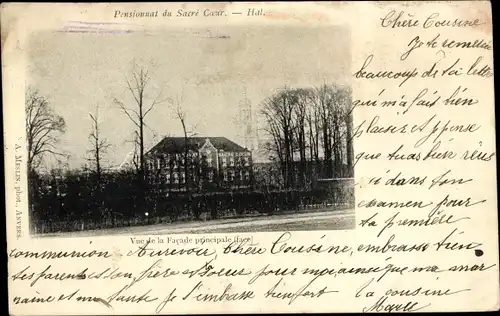 Pensionnat du Sacré Cœur. — Hal.
A. MESLIN, phot., ANVERS
Vue de la Façade principale (face)
Chère Cousine
Je te remercie
beaucoup de ta lettre
qui m'a fait bien
plaisir et pense
que tu as bien réussi
dans ton
examen pour
ta première
communion Aurevoir, Chère Cousine, embrasse bien
tes parents frère et sœur pour moi ainsi que ma mar
raine et ma tante Je t'embrasse bien fort
ta cousine
Marie